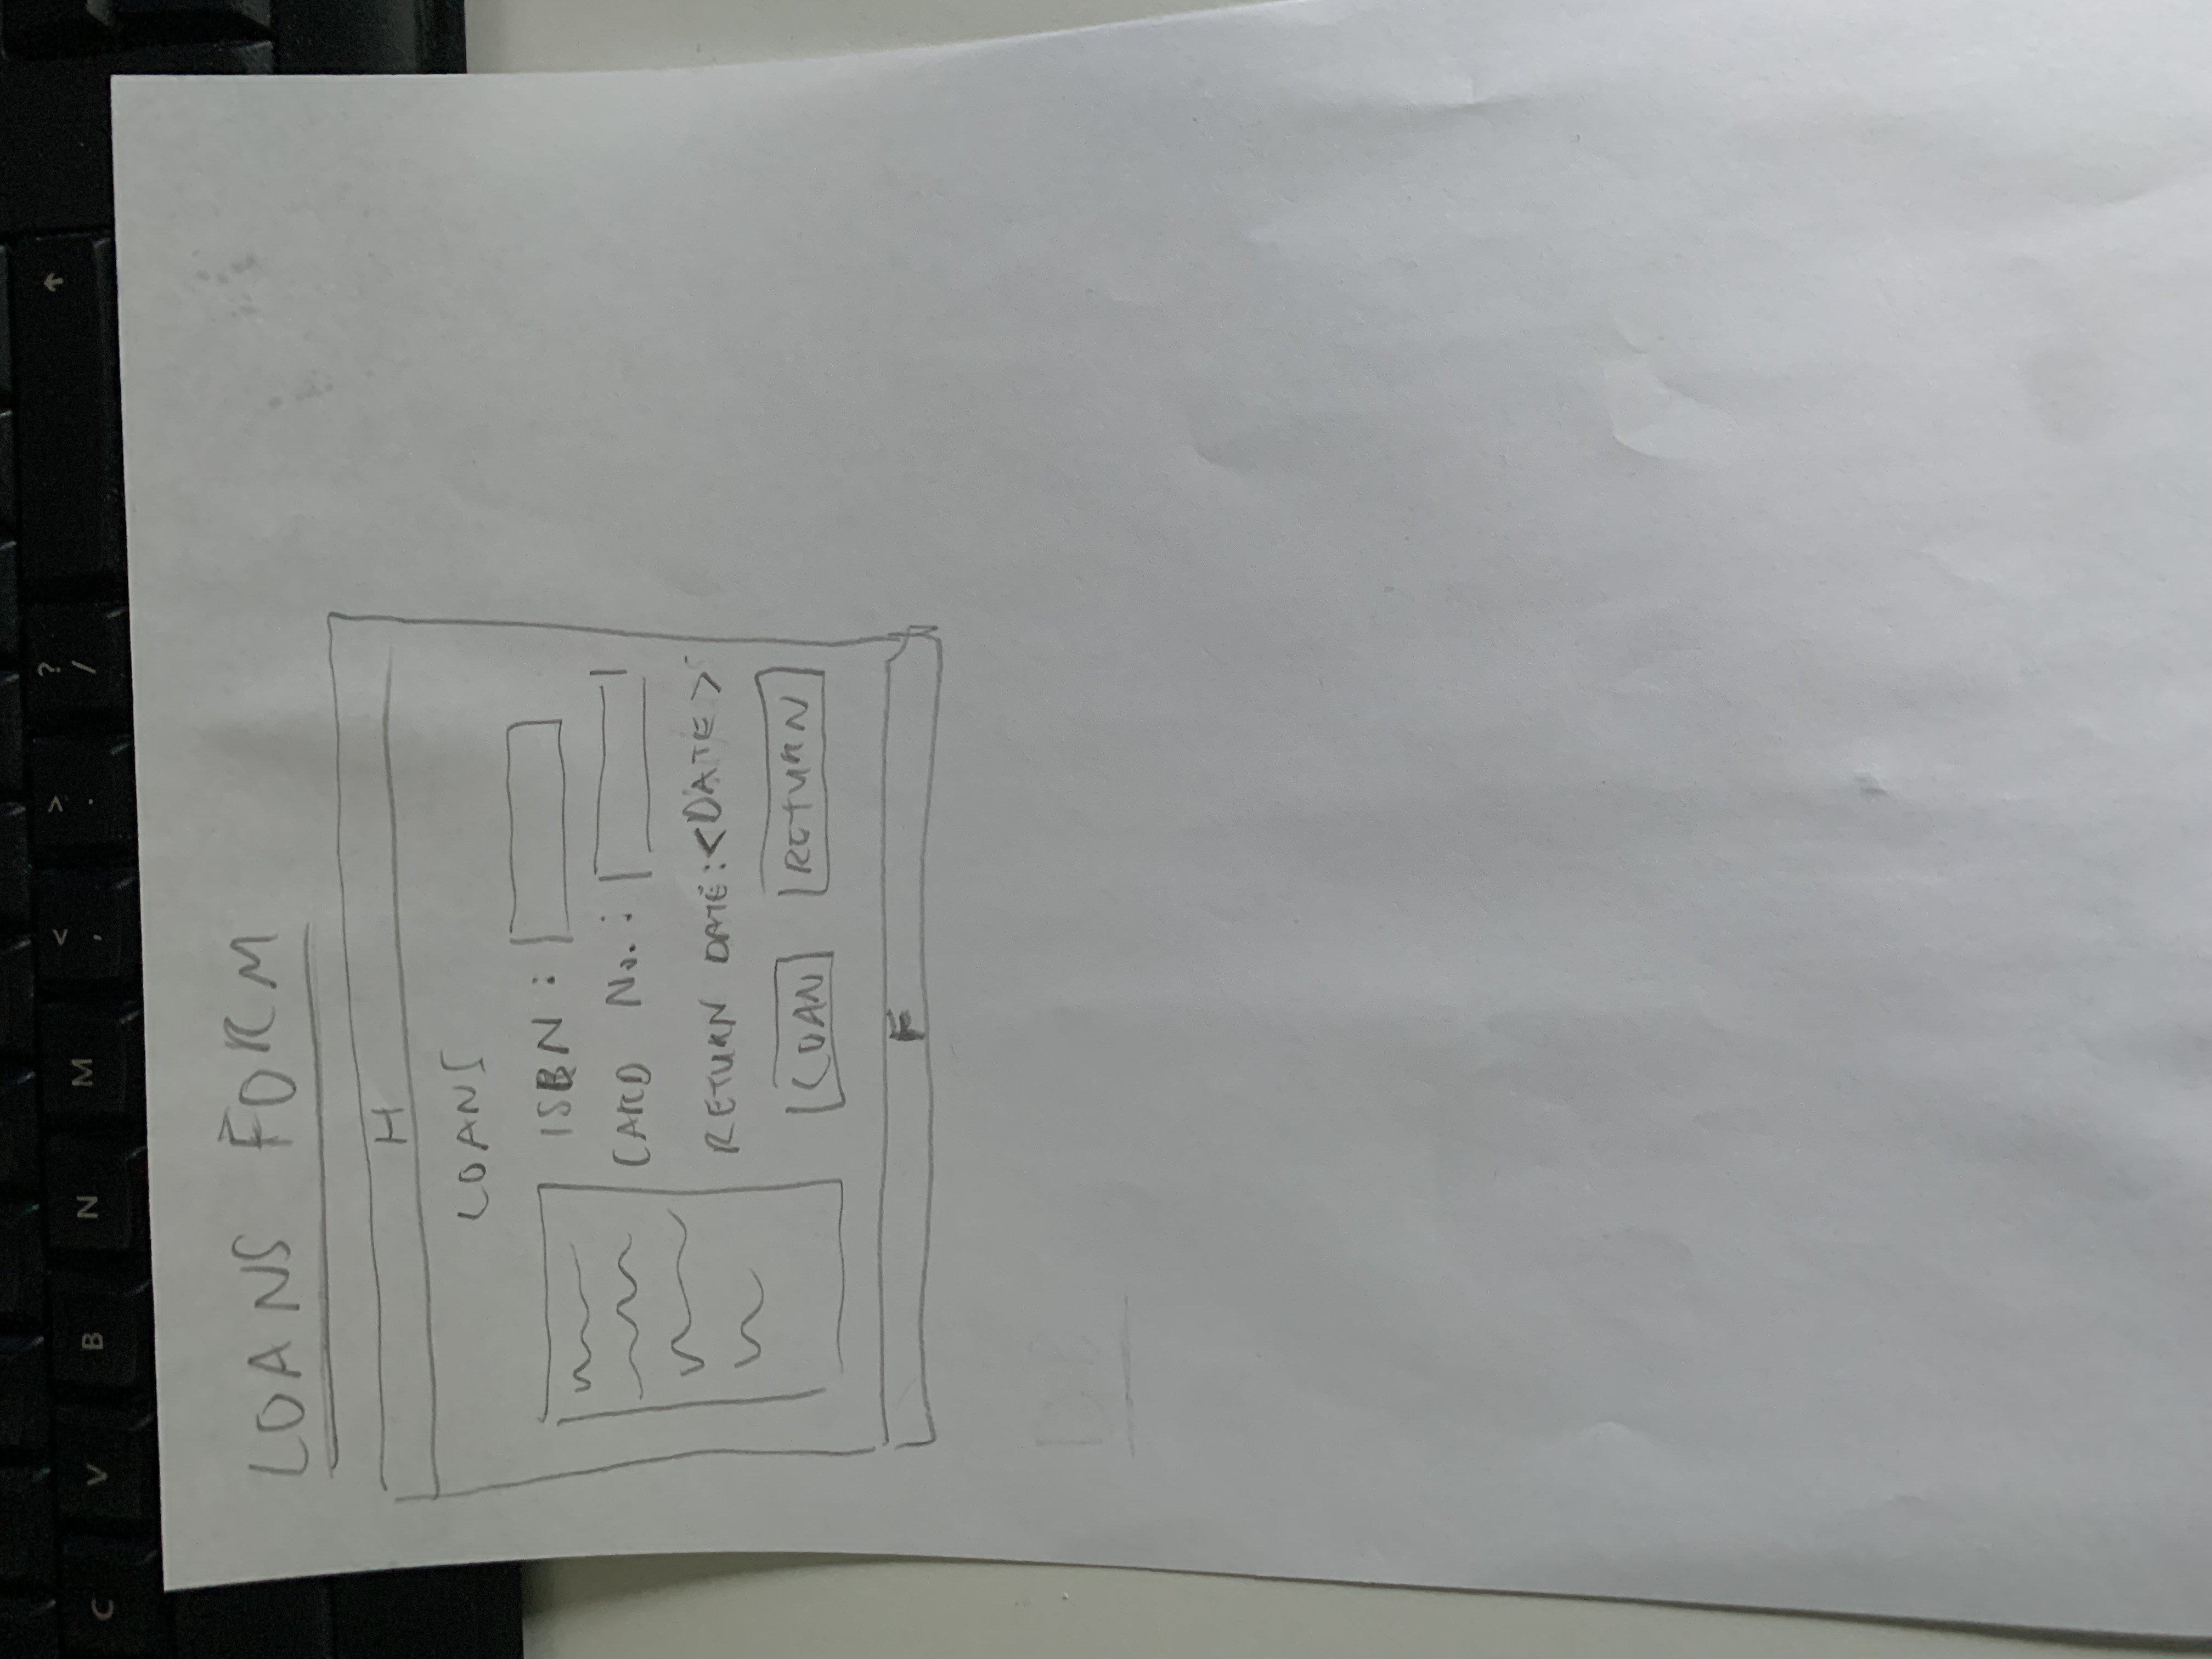 C V B N M < , > . ? / ↑
LOANS FORM
H
LOANS
ISBN :
CARD No. :
RETURN DATE: <DATE>
LOAN RETURN
F